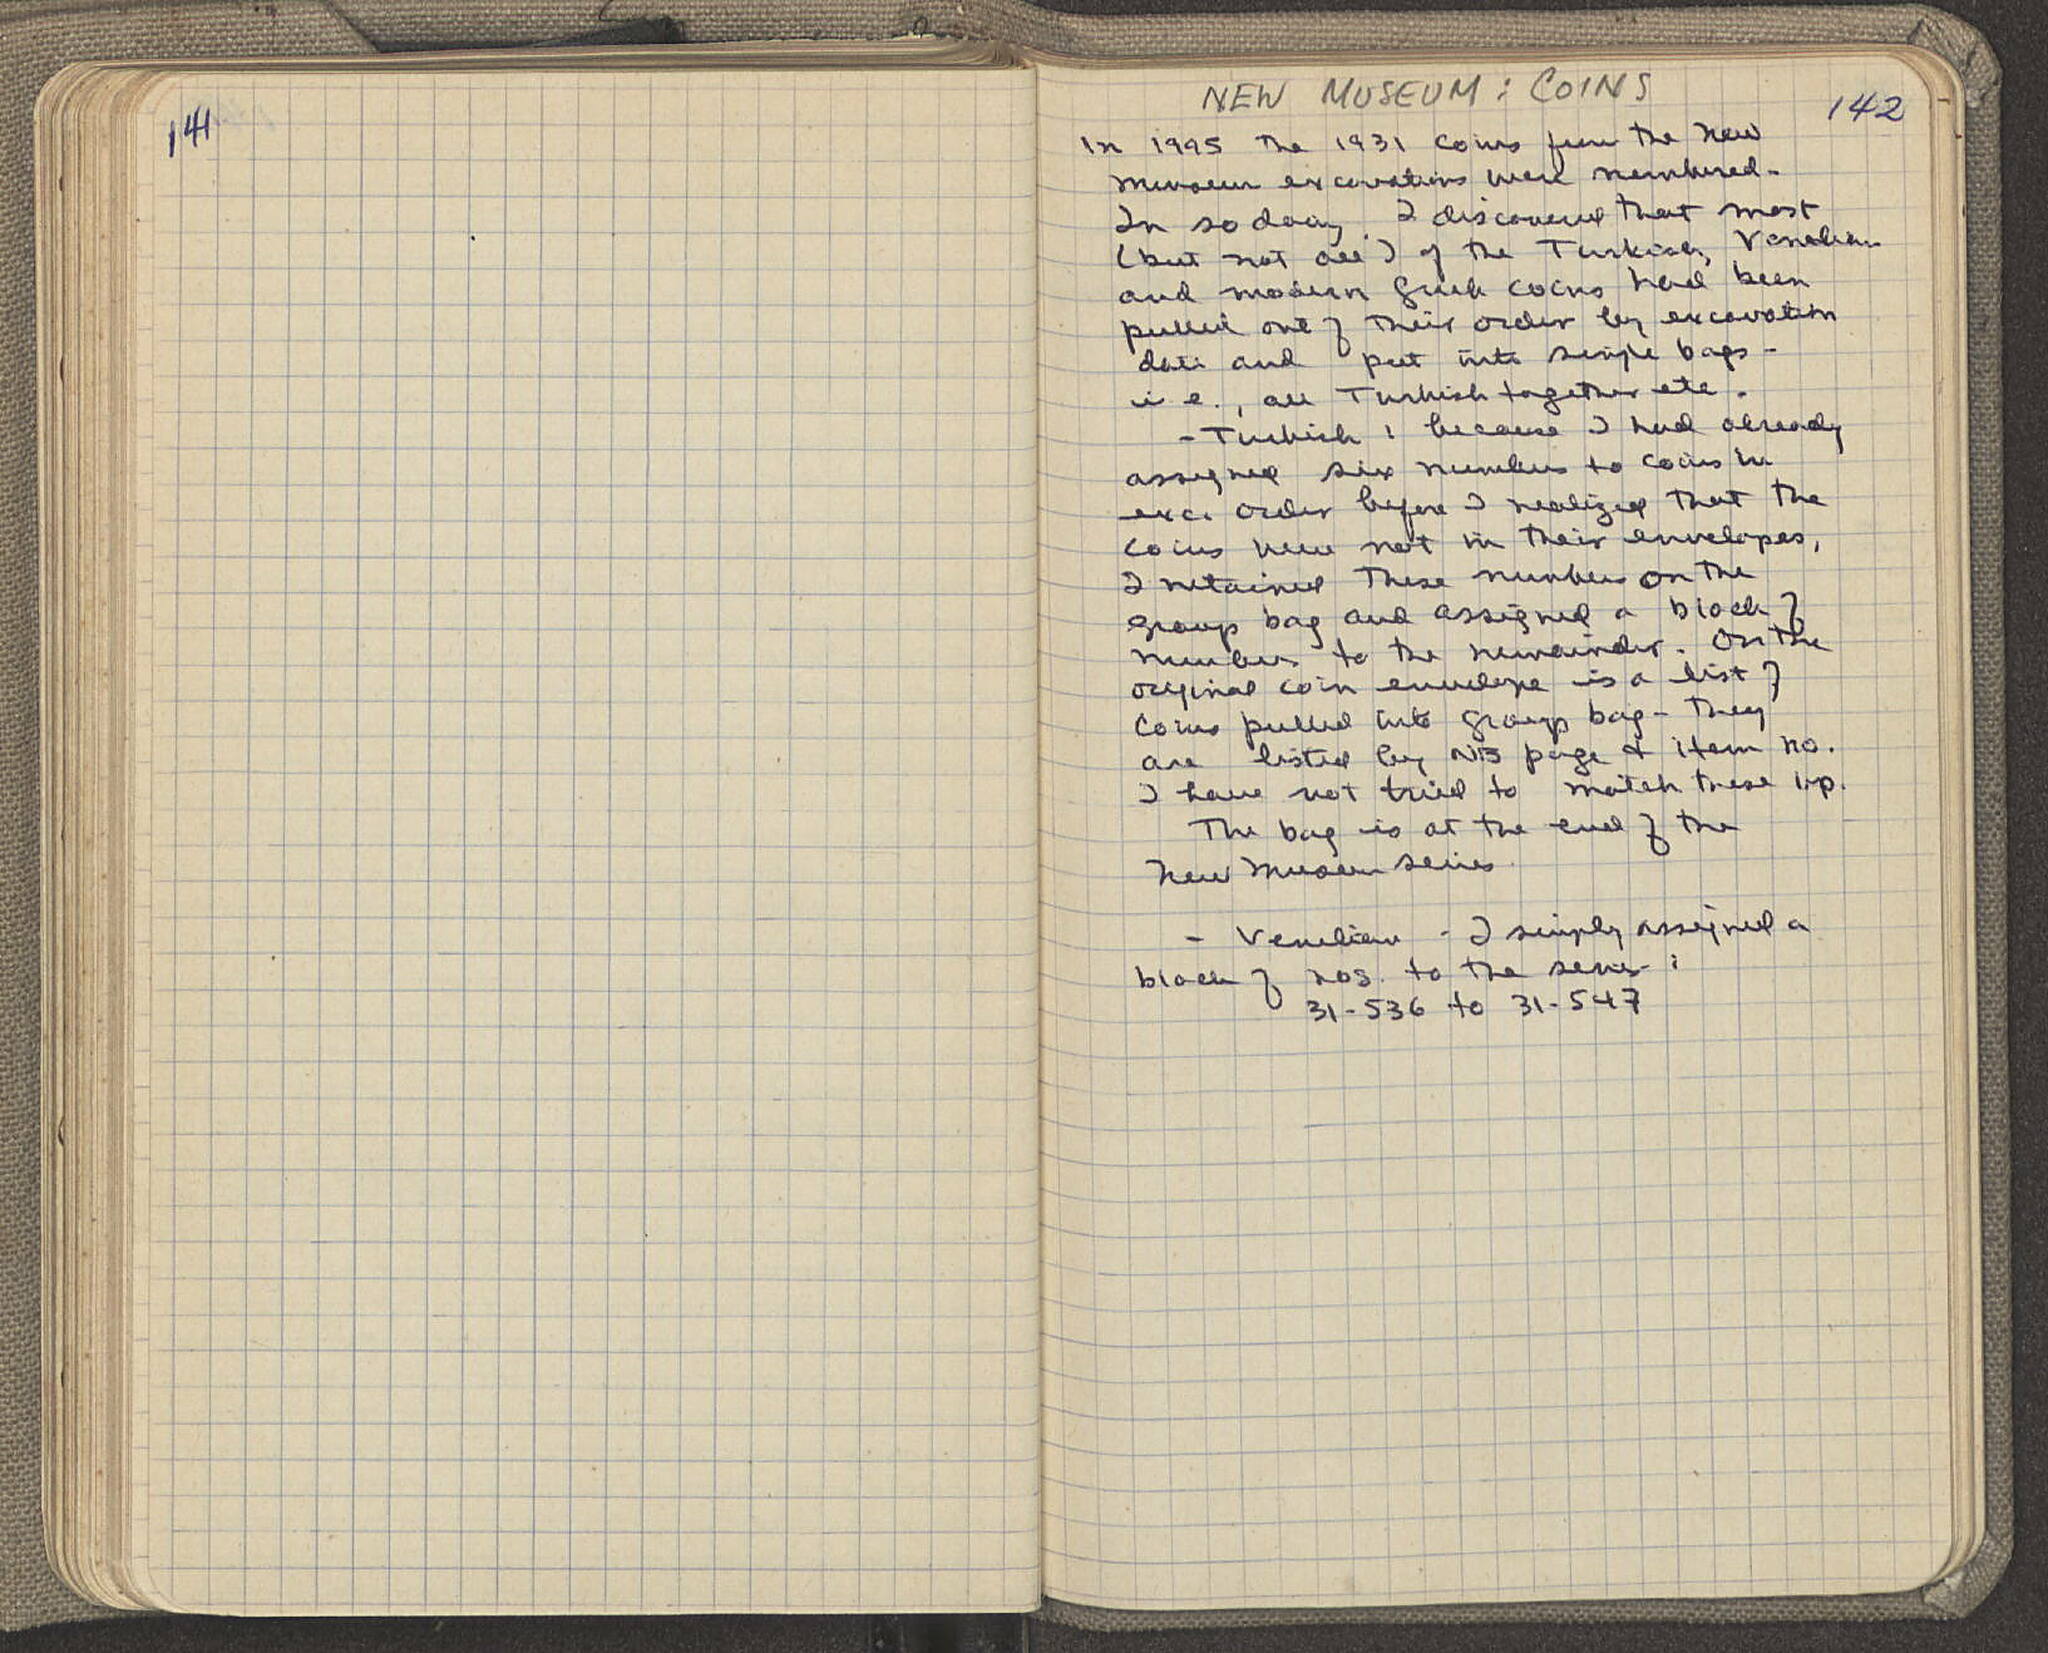 141
NEW MUSEUM : COINS
142
In 1995 the 1931 coins from the New
Museum excavations were numbered.
In so doing, I discovered that most
(but not all) of the Turkish, Venetian
and modern Greek coins had been
pulled out of their order by excavation
date and put into single bags -
i.e., all Turkish together etc.
- Turkish : because I had already
assigned six numbers to coins in
exc. order before I realized that the
coins were not in their envelopes,
I retained these numbers on the
group bag and assigned a block of
numbers to the remainder. On the
original coin envelope is a list of
coins pulled into group bag - they
are listed by NB page & item no.
I have not tried to match these up.
The bag is at the end of the
New Museum series.
- Venetian - I simply assigned a
block of nos. to the series :
31-536 to 31-547